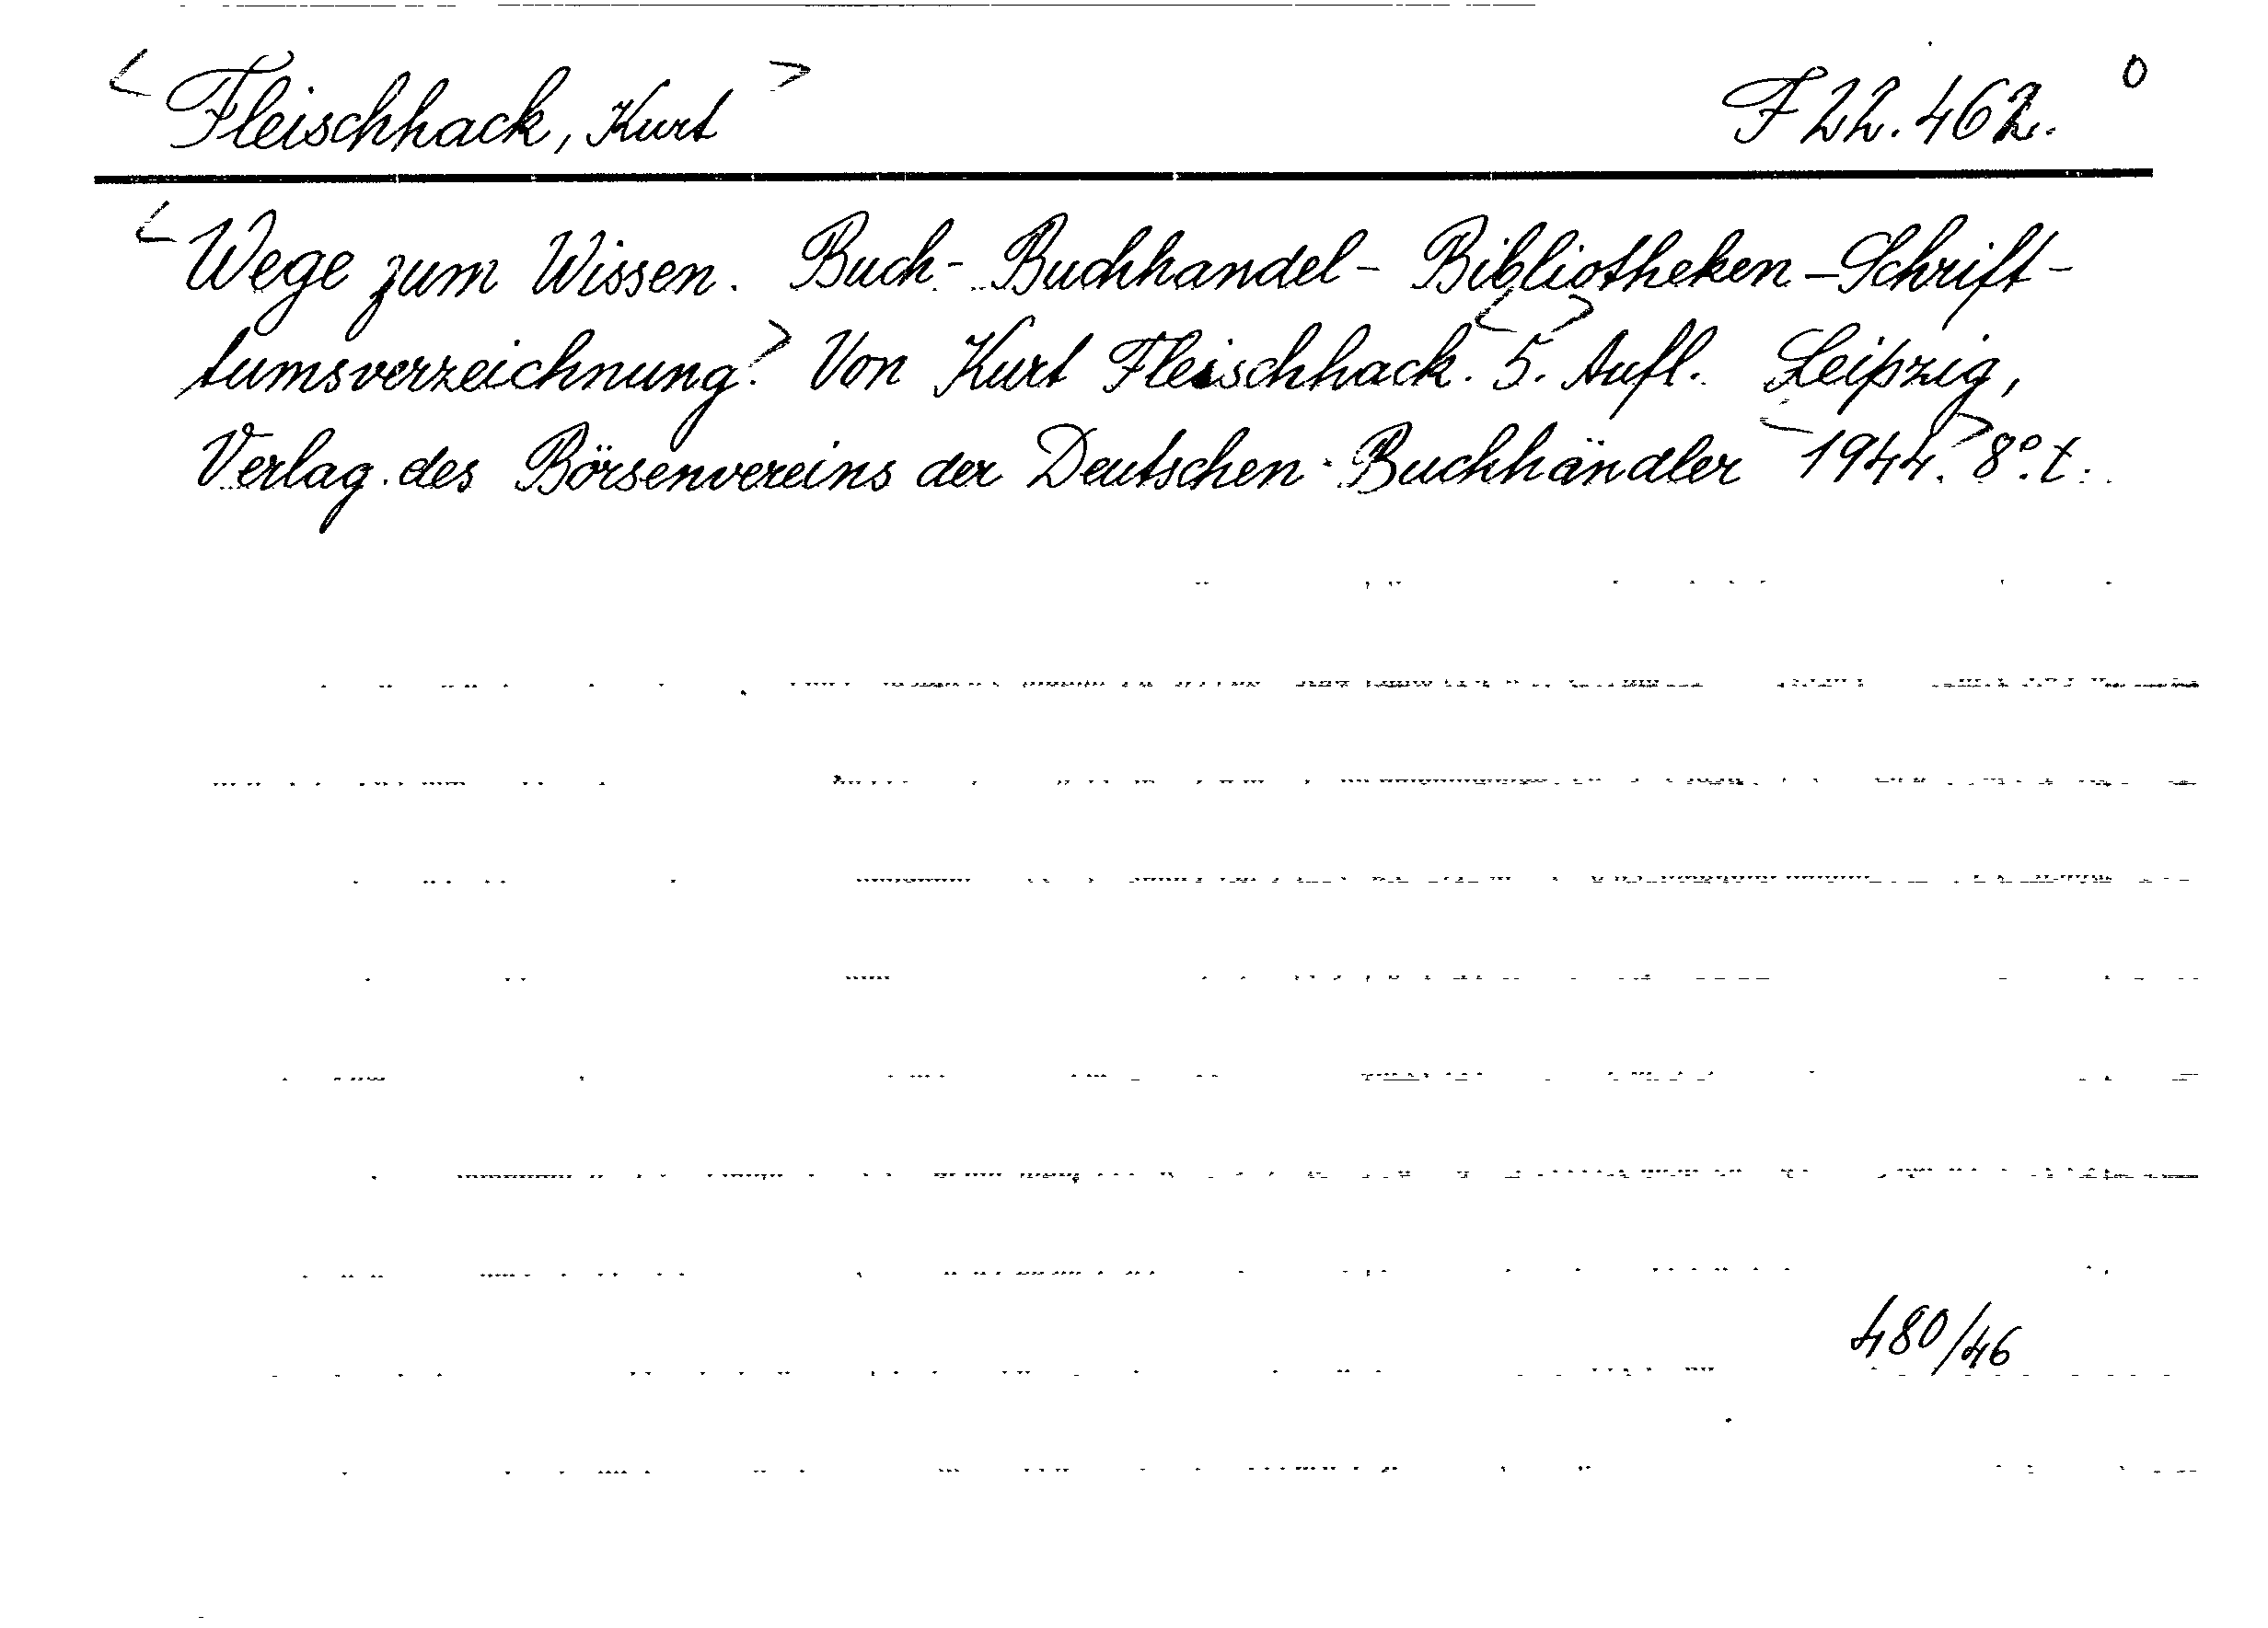 < Fleischhack, Kurt > F 22.462. 0
< Wege zum Wissen. Buch- Buchhandel- Bibliotheken-Schrift-
tumsverzeichnung.> Von Kurt Fleischhack. <5.> Aufl. Leipzig,
Verlag des Börsenvereins der Deutschen Buchhändler <1944.> 8°. t.
480/46